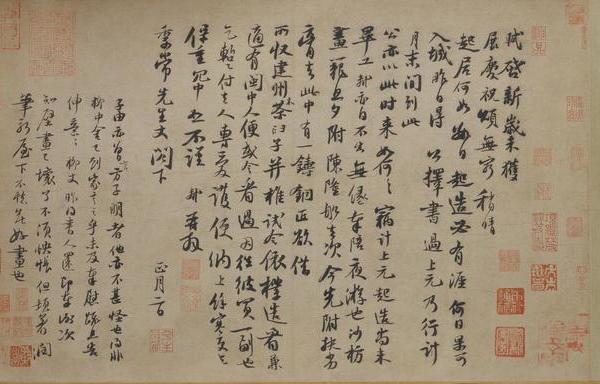 軾啓新歲未獲
展慶祝頌無窮稍晴
起居何如數日起造必有涯何日果可
入城昨日得公擇書過上元乃行計
月末間到此
公亦以此時來如何如何竊計上元起造尚未
畢工軾亦自不出無緣奉陪夜遊也沙枋
畫籠旦夕附陳隆船去次今先附扶劣
膏去此中有一鑄銅匠欲借
所收建州木茶臼子并椎試令依樣造看兼
適有閩中人便或令看過因往彼買一副也
乞暫付去人專愛護便納上餘寒更乞
保重冗中恕不謹軾再拜
季常先生丈閣下
正月二日
子由亦曾言方子明者他亦不甚怪也得非
柳中舍已到家言之乎未及奉慰疏且告
伸意伸意柳丈昨得書人還即奉謝次
知壁畫已壞了不須怏悵但頓著潤
筆新屋下不愁無好畫也